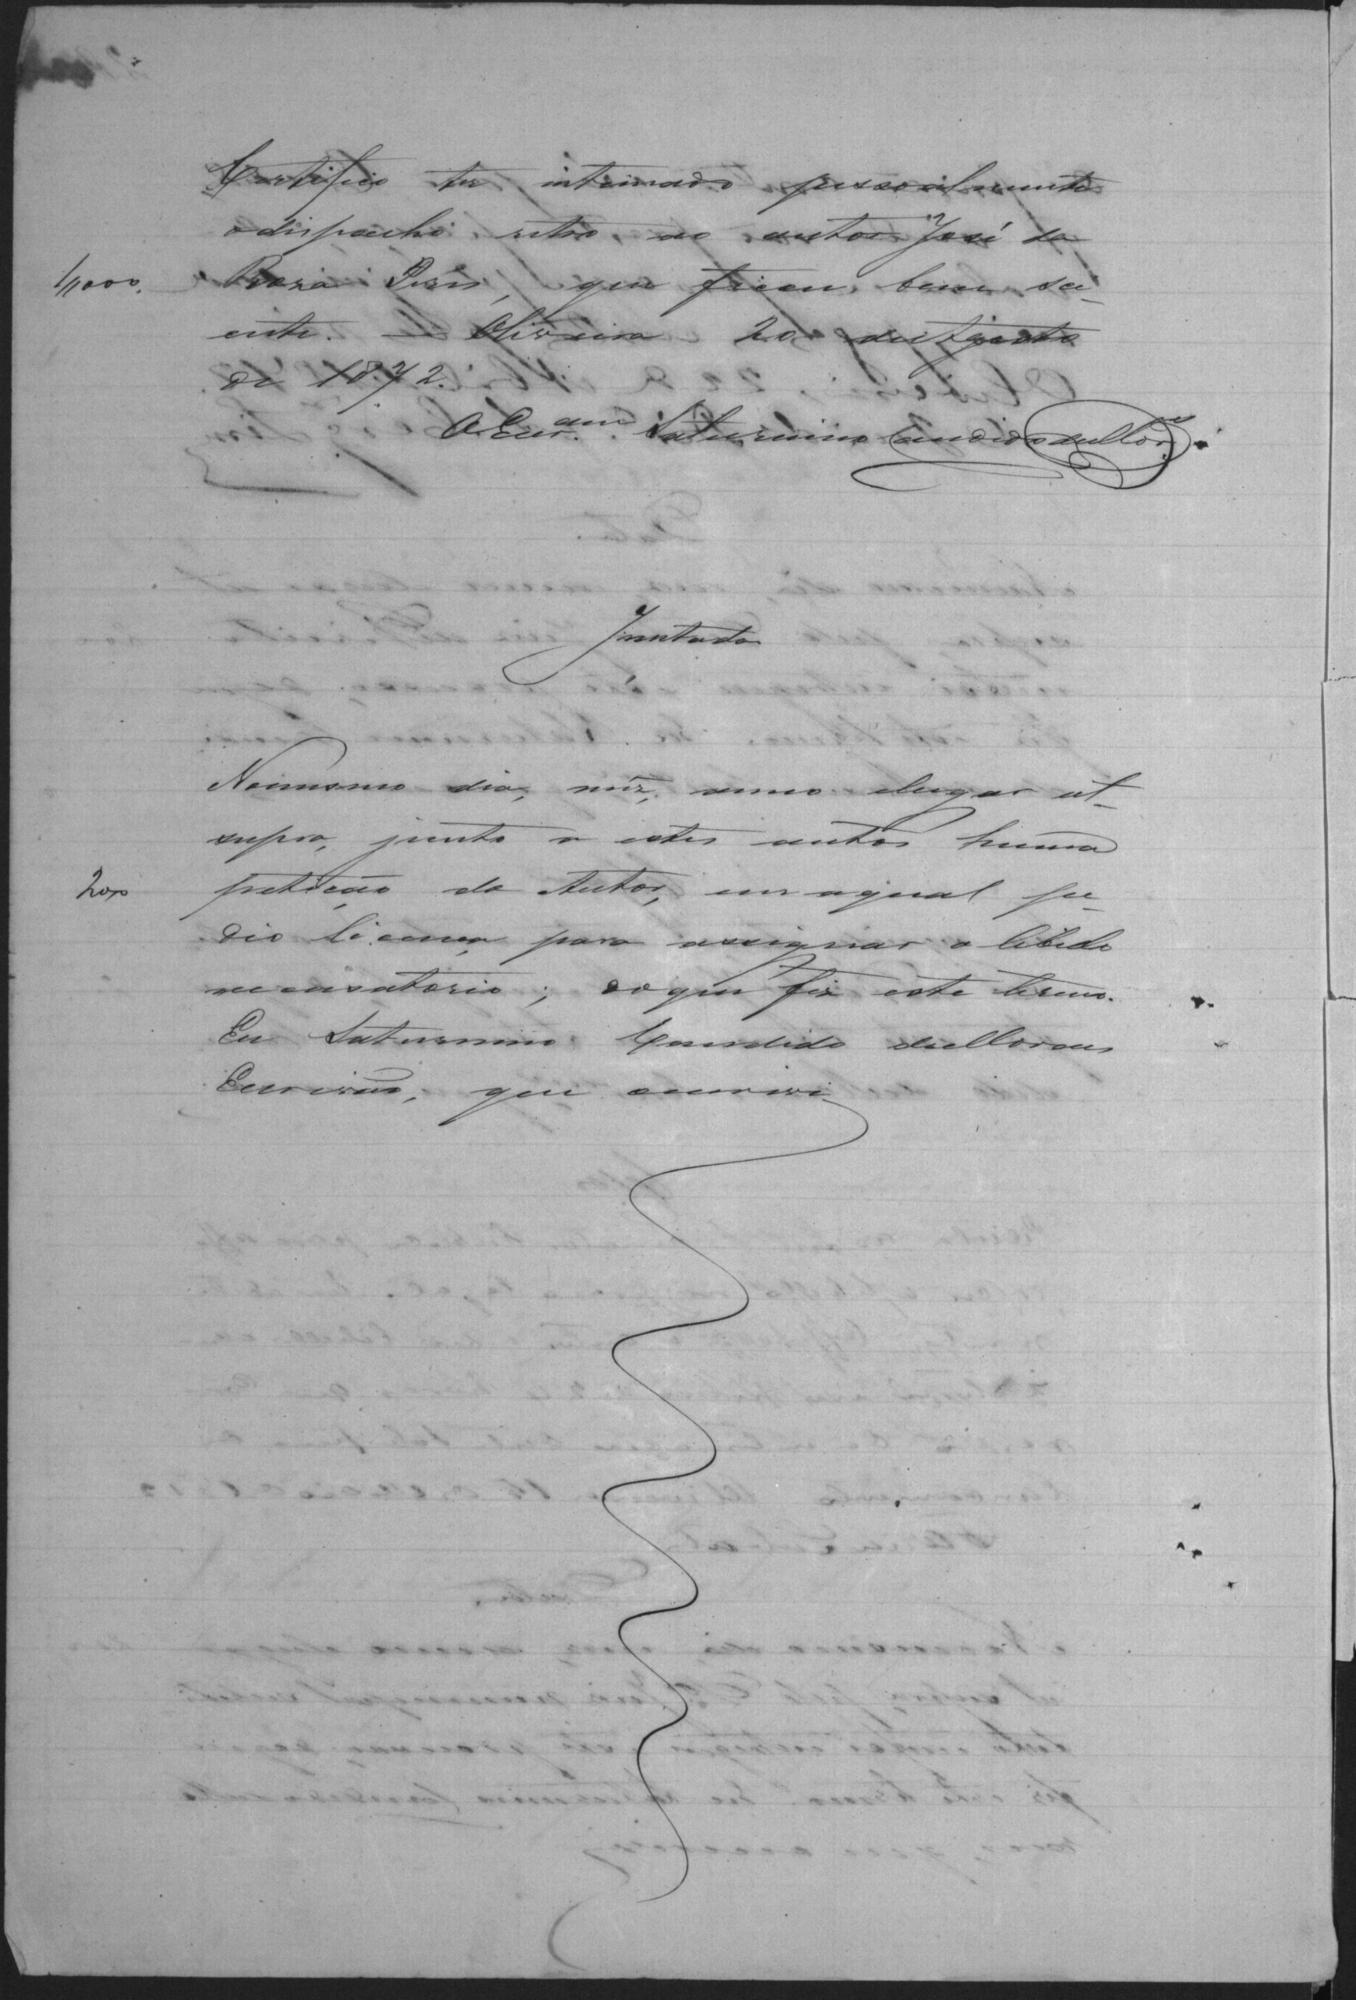 Certifico ter intimado pessoalmente
o dispacho retro ao autor José da
1,000. Roza Pires, que ficou bem sci-
ente. Oliveira 20 de Agosto
de 1872.
O Escr.am Saturnino Candido de Mor.es
Juntada
No mesmo dia, mêz, anno e lugar ut
supra, junto a estes autos huma
200 petição do Autor, em a qual pe-
dio licença para assignar o libello
accusatorio; do que fiz este termo.
Eu Saturnino Candido de Moraes
Escrivão, que escrivi